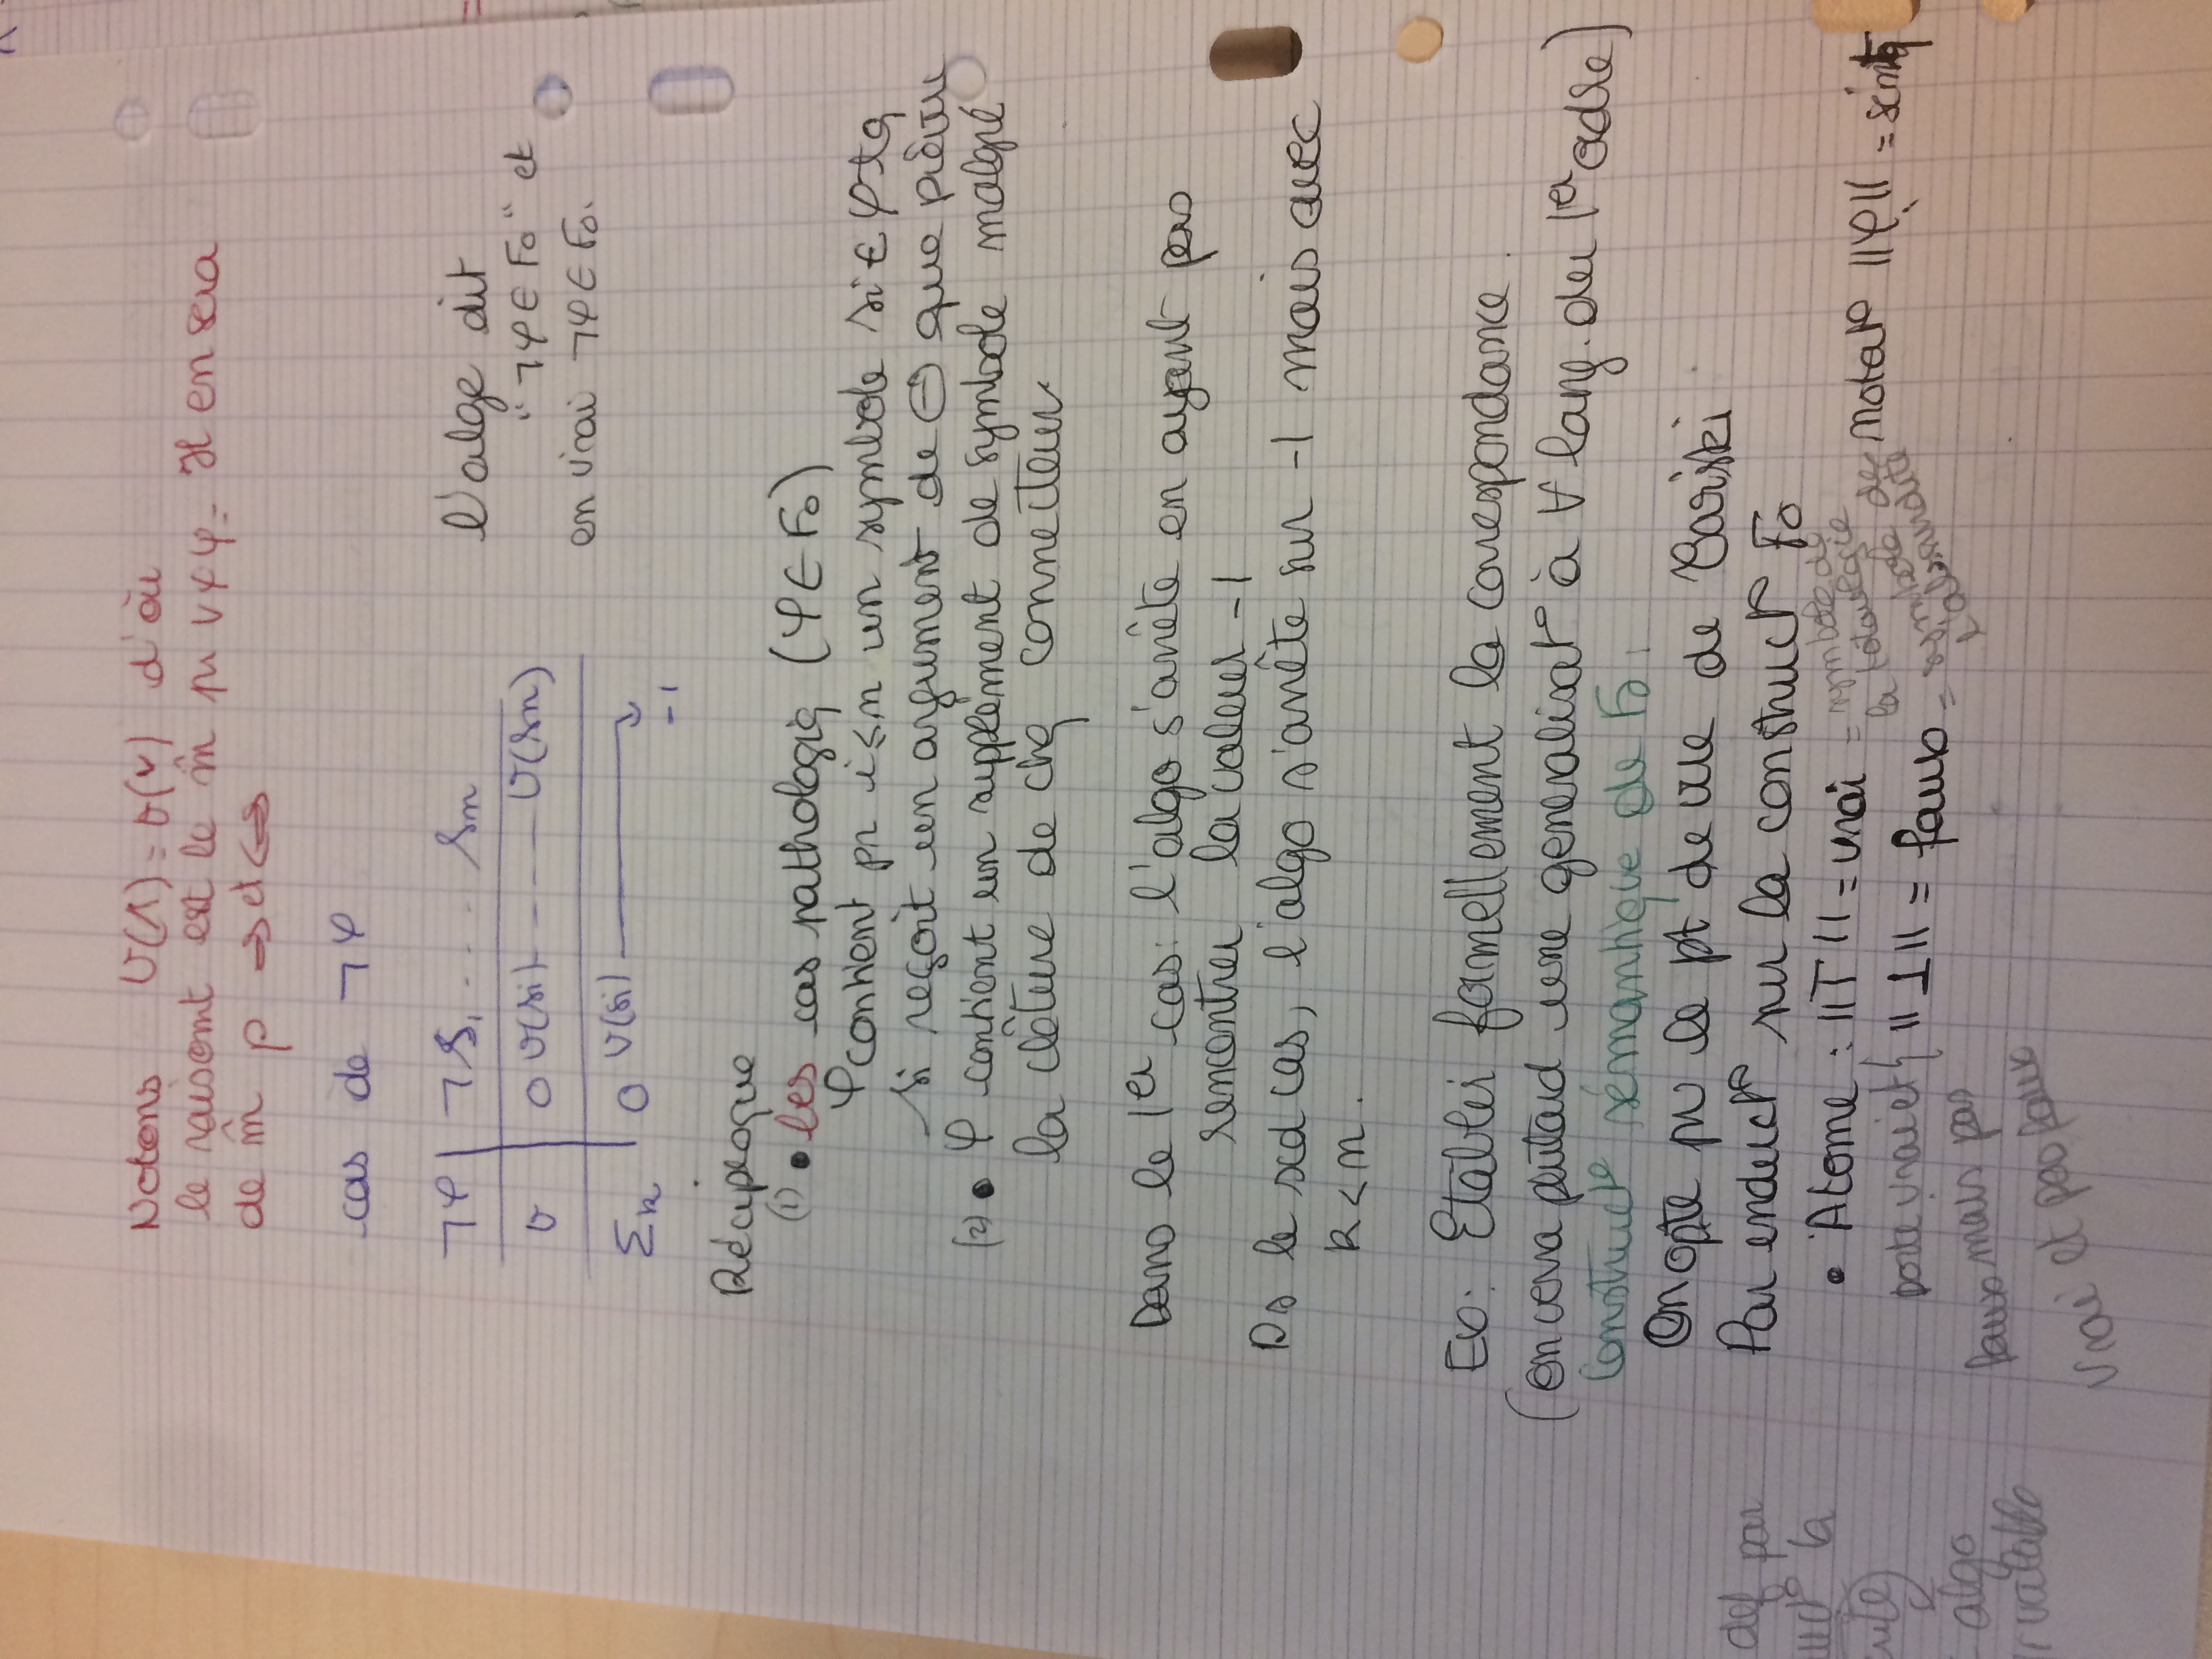 Notons U(∧) = υ(∨) d'où
le raisomt est le m̂ pr ∨ψφ. Il en sera
de m̂ p ⇒ et ⇔
cas de ¬φ
¬φ | ¬ S₁ . . . . Sn
υ | 0 υ(si) - - - - - υ(Sn)
Σk | 0 υ(si) → -1
l'algo dit
"¬φ ∈ F₀" et
en vrai ¬φ ∈ F₀.
Réciproque
(1) • les cas pathologiq (φ ∈ F₀)
φ contient pr i ≤ n un symbole si ∈ φ tq
si reçoit un argument de ⊖ que prévu
(2) • φ contient un supplément de symbole malgré
la clôture de chq connecteur
Dans le 1er cas: l'algo s'arrête en ayant pas
rencontrer la valeur -1
Ds le scd cas, l'algo s'arrête sur -1 mais avec
k < n.
Ex: Etablir formellement la correspondance.
(on verra plutard une generalisat° à ∀ lang. du 1er odre)
Construct° sémantique de F₀.
On opte pr le pt de vue de Tarski
Par enduct° sur la construct° F₀
• Atome : ||⊤|| = vrai = symbole de
la tautologie
porte vrai et { ||⊥|| = faux = symbole de
l'absurdité
notat° ||φ|| = sémtq
faux mais pas
vrai et pas faux
def par
uct° la
algo
valable